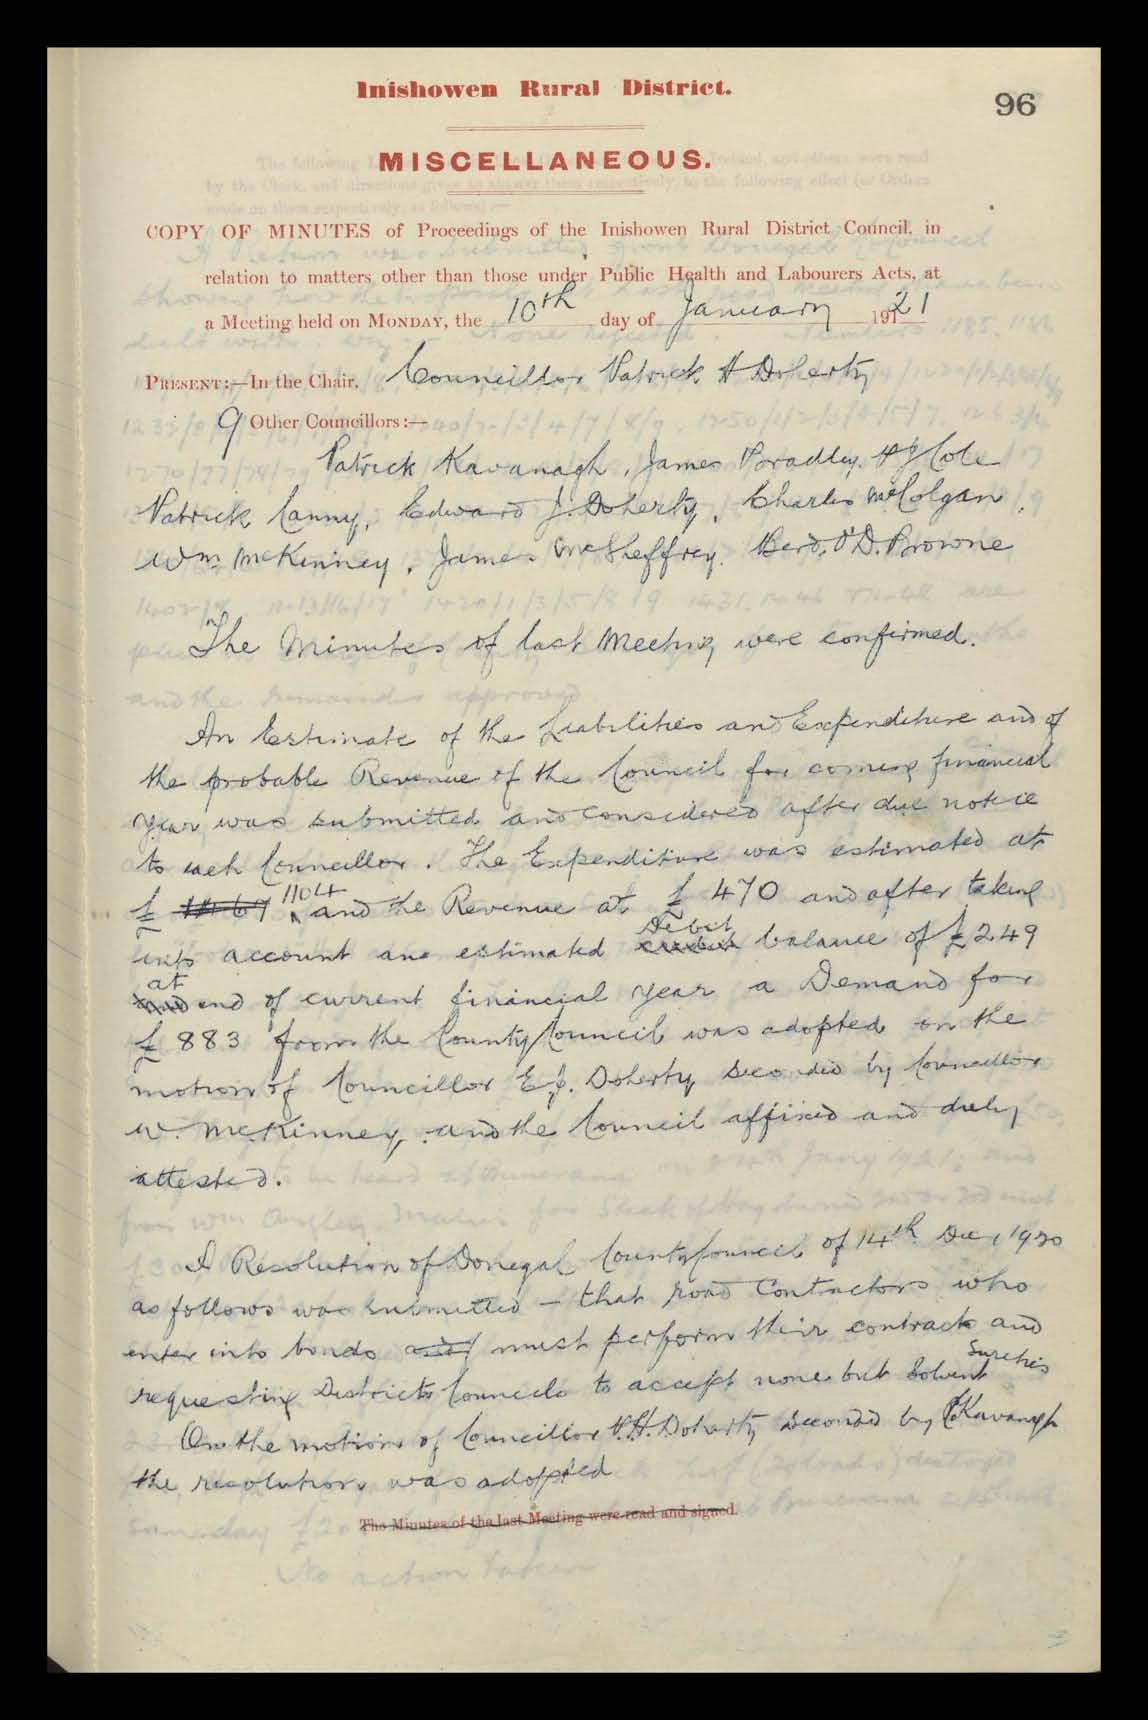 Inishowen Rural District.
96
MISCELLANEOUS.
COPY OF MINUTES of Proceedings of the Inishowen Rural District Council, in
relation to matters other than those under Public Health and Labourers Acts, at
a Meeting held on MONDAY, the 10th day of January 1921
PRESENT:—In the Chair, Councillor Patrick H Doherty
9 Other Councillors:—
Patrick Kavanagh, James Bradley, Cole
Patrick Canny, Edward J. Doherty, Charles McColgan,
Wm McKinney, James McSheffrey. Berd. O'D. Browne
The Minutes of last Meeting were confirmed.
An Estimate of the Liabilities and Expenditure and of
the probable Revenue of the Council for coming financial
year was submitted and considered after due notice
to each Councillor. The Expenditure was estimated at
£ 1104 and the Revenue at £ 470 and after taking
into account and estimated Debit balance of £249
at end of current financial year a Demand for
£ 883 from the County Council was adopted on the
motion of Councillor E.J. Doherty seconded by Councillor
W. McKinney, and the Council affixed and duly
attested.
A Resolution of Donegal County Council of 14th Dec, 1920
as follows was submitted – that road Contractors who
enter into bonds must perform their contracts and
requesting Districts Councils to accept none but Solvent Sureties
On the motion of Councillor P.H. Doherty seconded by P Kavanagh
the resolution was adopted
The Minutes of the last Meeting were read and signed.
No action taken